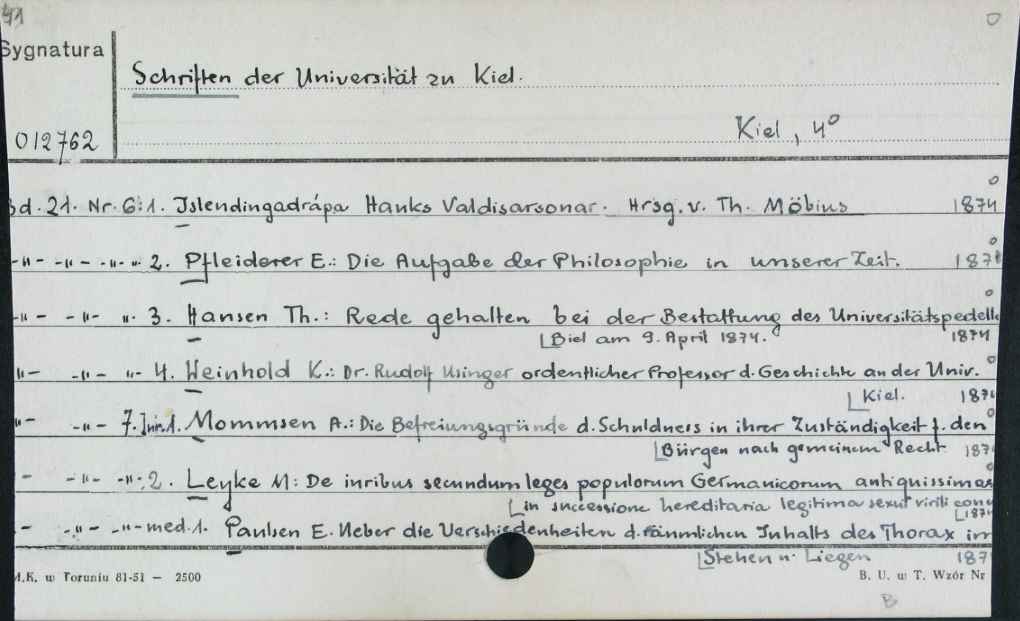 41
Sygnatura
Schriften der Universität zu Kiel.
012762
Kiel, 4°
Bd. 21. Nr. 6:1. Islendingadrápa Hanks Valdisarsonar. Hrsg. v. Th. Möbius 1874
-"- -"- -"- "- 2. Pfleiderer E.: Die Aufgabe der Philosophie in unserer Zeit. 187
-"- -"- "- 3. Hansen Th.: Rede gehalten bei der Bestattung des Universitätspedelle
Biel am 9. April 1874. 1874
"- -"- "- 4. Weinhold K.: Dr. Rudolf Usinger ordentlicher Professor d. Geschichte an der Univ.
Kiel. 187
"- -"- 7. Jur. 1. Mommsen A.: Die Befreiungsgründe d. Schuldners in ihrer Zuständigkeit f. den
Bürgen nach gemeinem Recht 187
- -"- -"-: 2. Leyke M: De inribus secundum leges populorum Germanicorum antiquissimas
in successione hereditaria legitima sexui virili
187
- -"- -"- med. 1. Paulsen E. Ueber die Verschiedenheiten d. räumlichen Inhalts des Thorax im
Stehen u. Liegen 187
A.K. w Toruniu 81-51 — 2500
B. U. w T. Wzór Nr
B